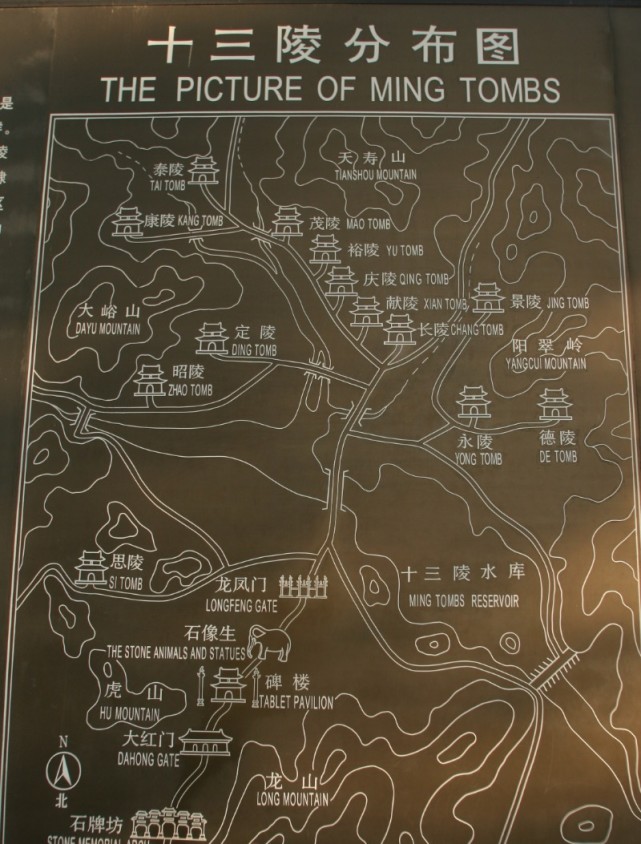 十三陵分布图
THE PICTURE OF MING TOMBS
是
陵
天寿山
TIANSHOU MOUNTAIN
泰陵
TAI TOMB
康陵 KANG TOMB
茂陵 MAO TOMB
裕陵 YU TOMB
庆陵 QING TOMB
献陵 XIAN TOMB
景陵 JING TOMB
大峪山
DAYU MOUNTAIN
长陵 CHANG TOMB
定陵
DING TOMB
阳翠岭
YANGCUI MOUNTAIN
昭陵
ZHAO TOMB
永陵
YONG TOMB
德陵
DE TOMB
思陵
SI TOMB
龙凤门
LONGFENG GATE
十三陵水库
MING TOMBS RESERVOIR
石像生
THE STONE ANIMALS AND STATUES
虎山
HU MOUNTAIN
碑楼
TABLET PAVILION
大红门
DAHONG GATE
N
北
龙山
LONG MOUNTAIN
石牌坊
STONE MEMORIAL ARCH